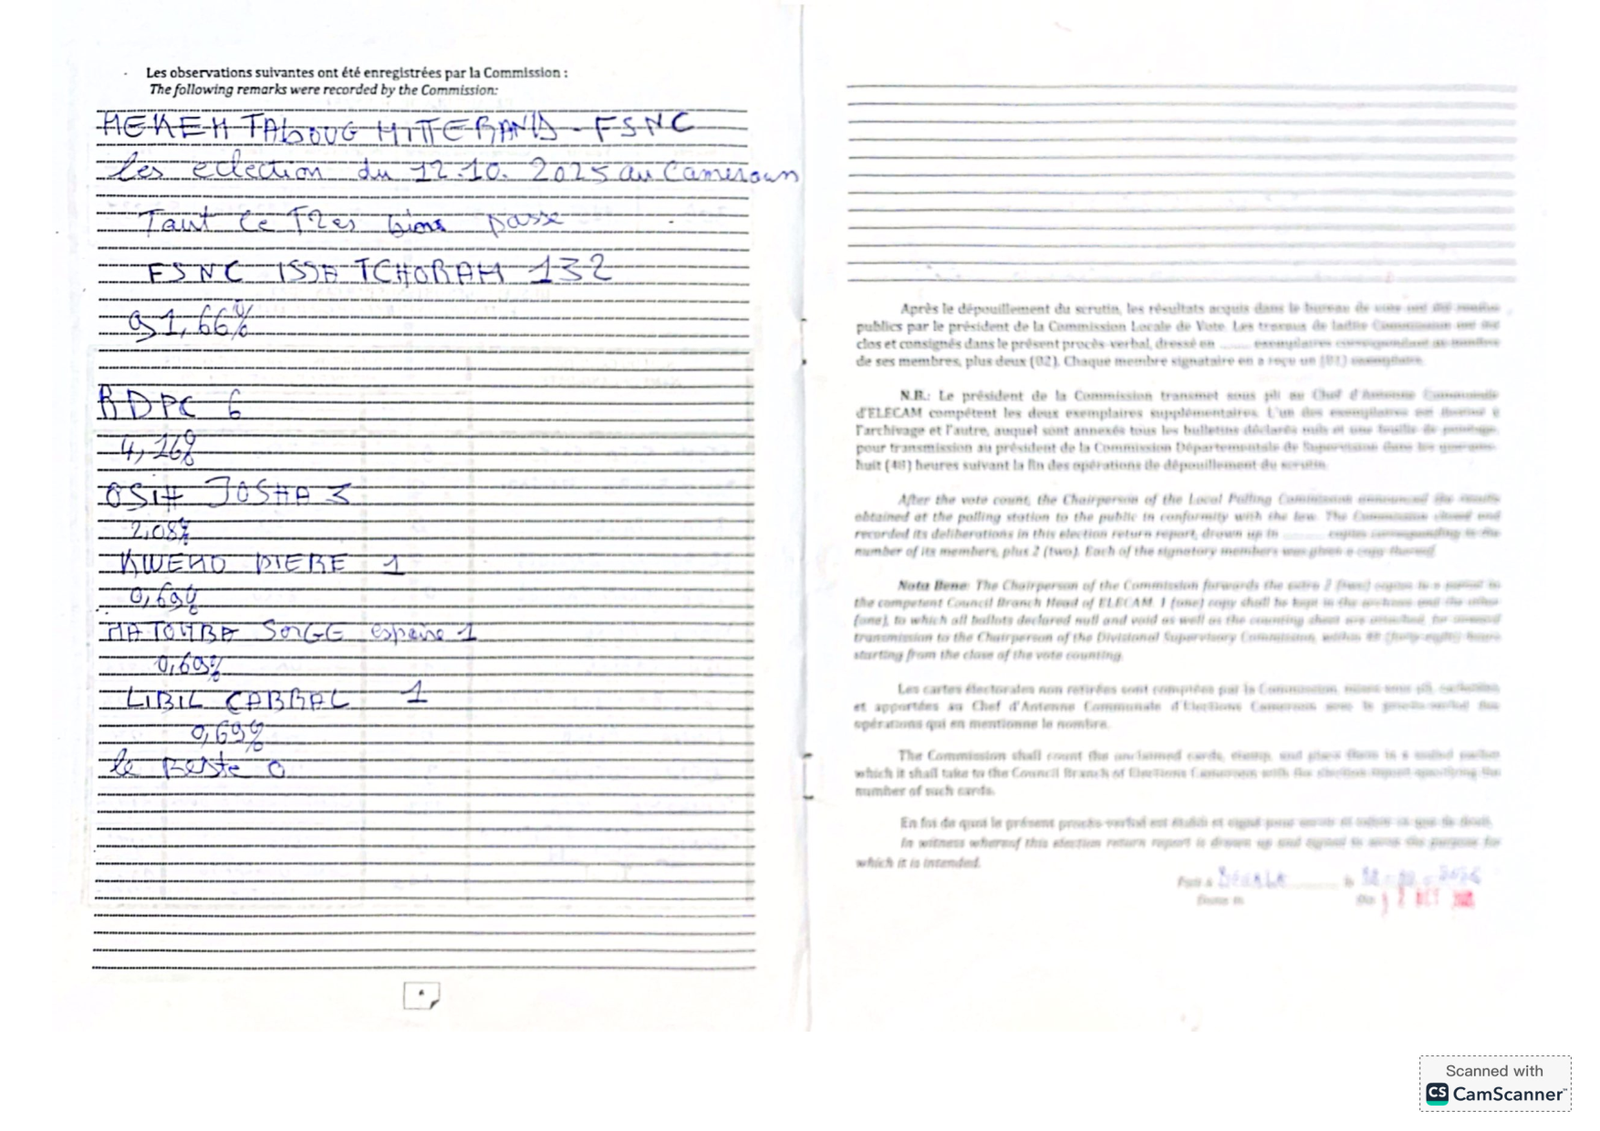 Les observations suivantes ont été enregistrées par la Commission :
The following remarks were recorded by the Commission:
MEKEH TABOUG MITTERAND - FSNC
les eclection du 12.10.2025 au Cameroun
Taut ce Tres bien passe
FSNC ISSA TCHORAH 132
91,66%
RDPC 6
4,16%
OSIH JOSHA 3
2,08%
KWEMO PIERE 1
0,69%
MATOMBA SERGE espoire 1
0,69%
LIBIL CABRAL 1
0,69%
le Reste 0
Après le dépouillement du scrutin, les résultats acquis dans le bureau de vote ont été rendus
publics par le président de la Commission Locale de Vote. Les travaux de ladite Commission ont été
clos et consignés dans le présent procès-verbal, dressé en ........ exemplaires correspondant au nombre
de ses membres, plus deux (02). Chaque membre signataire en a reçu un (01) exemplaire.
N.B.: Le président de la Commission transmet sous pli au Chef d'Antenne Communale
d'ELECAM compétent les deux exemplaires supplémentaires. L'un des exemplaires est destiné à
l'archivage et l'autre, auquel sont annexés tous les bulletins déclarés nuls et une feuille de pointage,
pour transmission au président de la Commission Départementale de Supervision dans les quarante-
huit (48) heures suivant la fin des opérations de dépouillement du scrutin.
After the vote count, the Chairperson of the Local Polling Commission announced the results
obtained at the polling station to the public in conformity with the law. The Commission closed and
recorded its deliberations in this election return report, drawn up in ........ copies corresponding to the
number of its members, plus 2 (two). Each of the signatory members was given a copy thereof.
Nota Bene: The Chairperson of the Commission forwards the extra 2 (two) copies in a sealed to
the competent Council Branch Head of ELECAM. 1 (one) copy shall be kept in the archives and the other
(one), to which all ballots declared null and void as well as the counting sheet are attached, for onward
transmission to the Chairperson of the Divisional Supervisory Commission, within 48 (forty-eight) hours
starting from the close of the vote counting.
Les cartes électorales non retirées sont comptées par la Commission, mises sous pli, cachetées
et apportées au Chef d'Antenne Communale d'Elections Cameroon avec le procès-verbal des
opérations qui en mentionne le nombre.
The Commission shall count the unclaimed cards, stamp, and place them in a sealed packet
which it shall take to the Council Branch of Elections Cameroon with the election report specifying the
number of such cards.
En foi de quoi le présent procès-verbal est établi et signé pour servir et valoir ce que de droit.
In witness whereof this election return report is drawn up and signed to serve the purpose for
which it is intended.
Fait à DOUALA le
Done in On 12 OCT
Scanned with
CS CamScanner